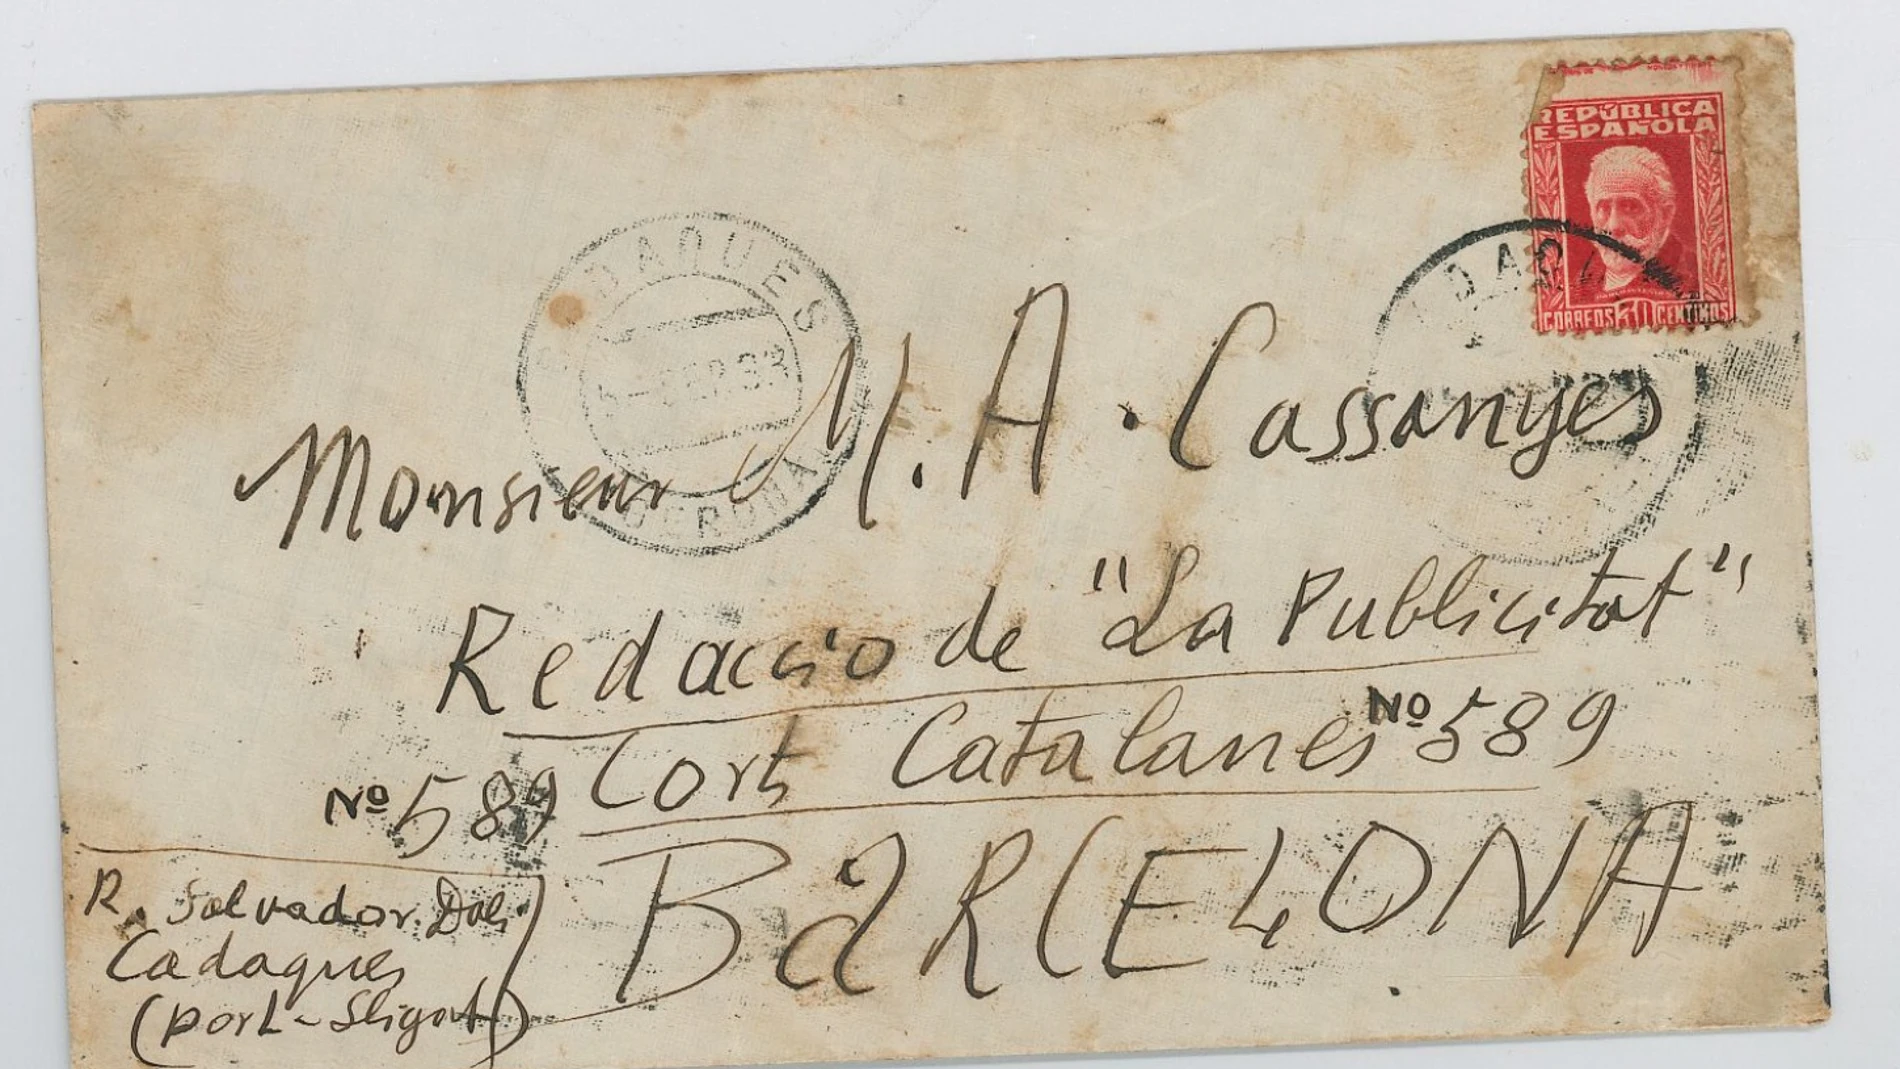 REPÚBLICA
ESPAÑOLA
CORREOS 30 CENTIMOS
CADAQUES
SEP.33
GERONA
Monsieur M. A. Cassanyes
Redacció de "La Publicitat"
Corts Catalanes Nº 589
Nº 589
BARCELONA
R. Salvador Dali
Cadaques
(port-Sligat)